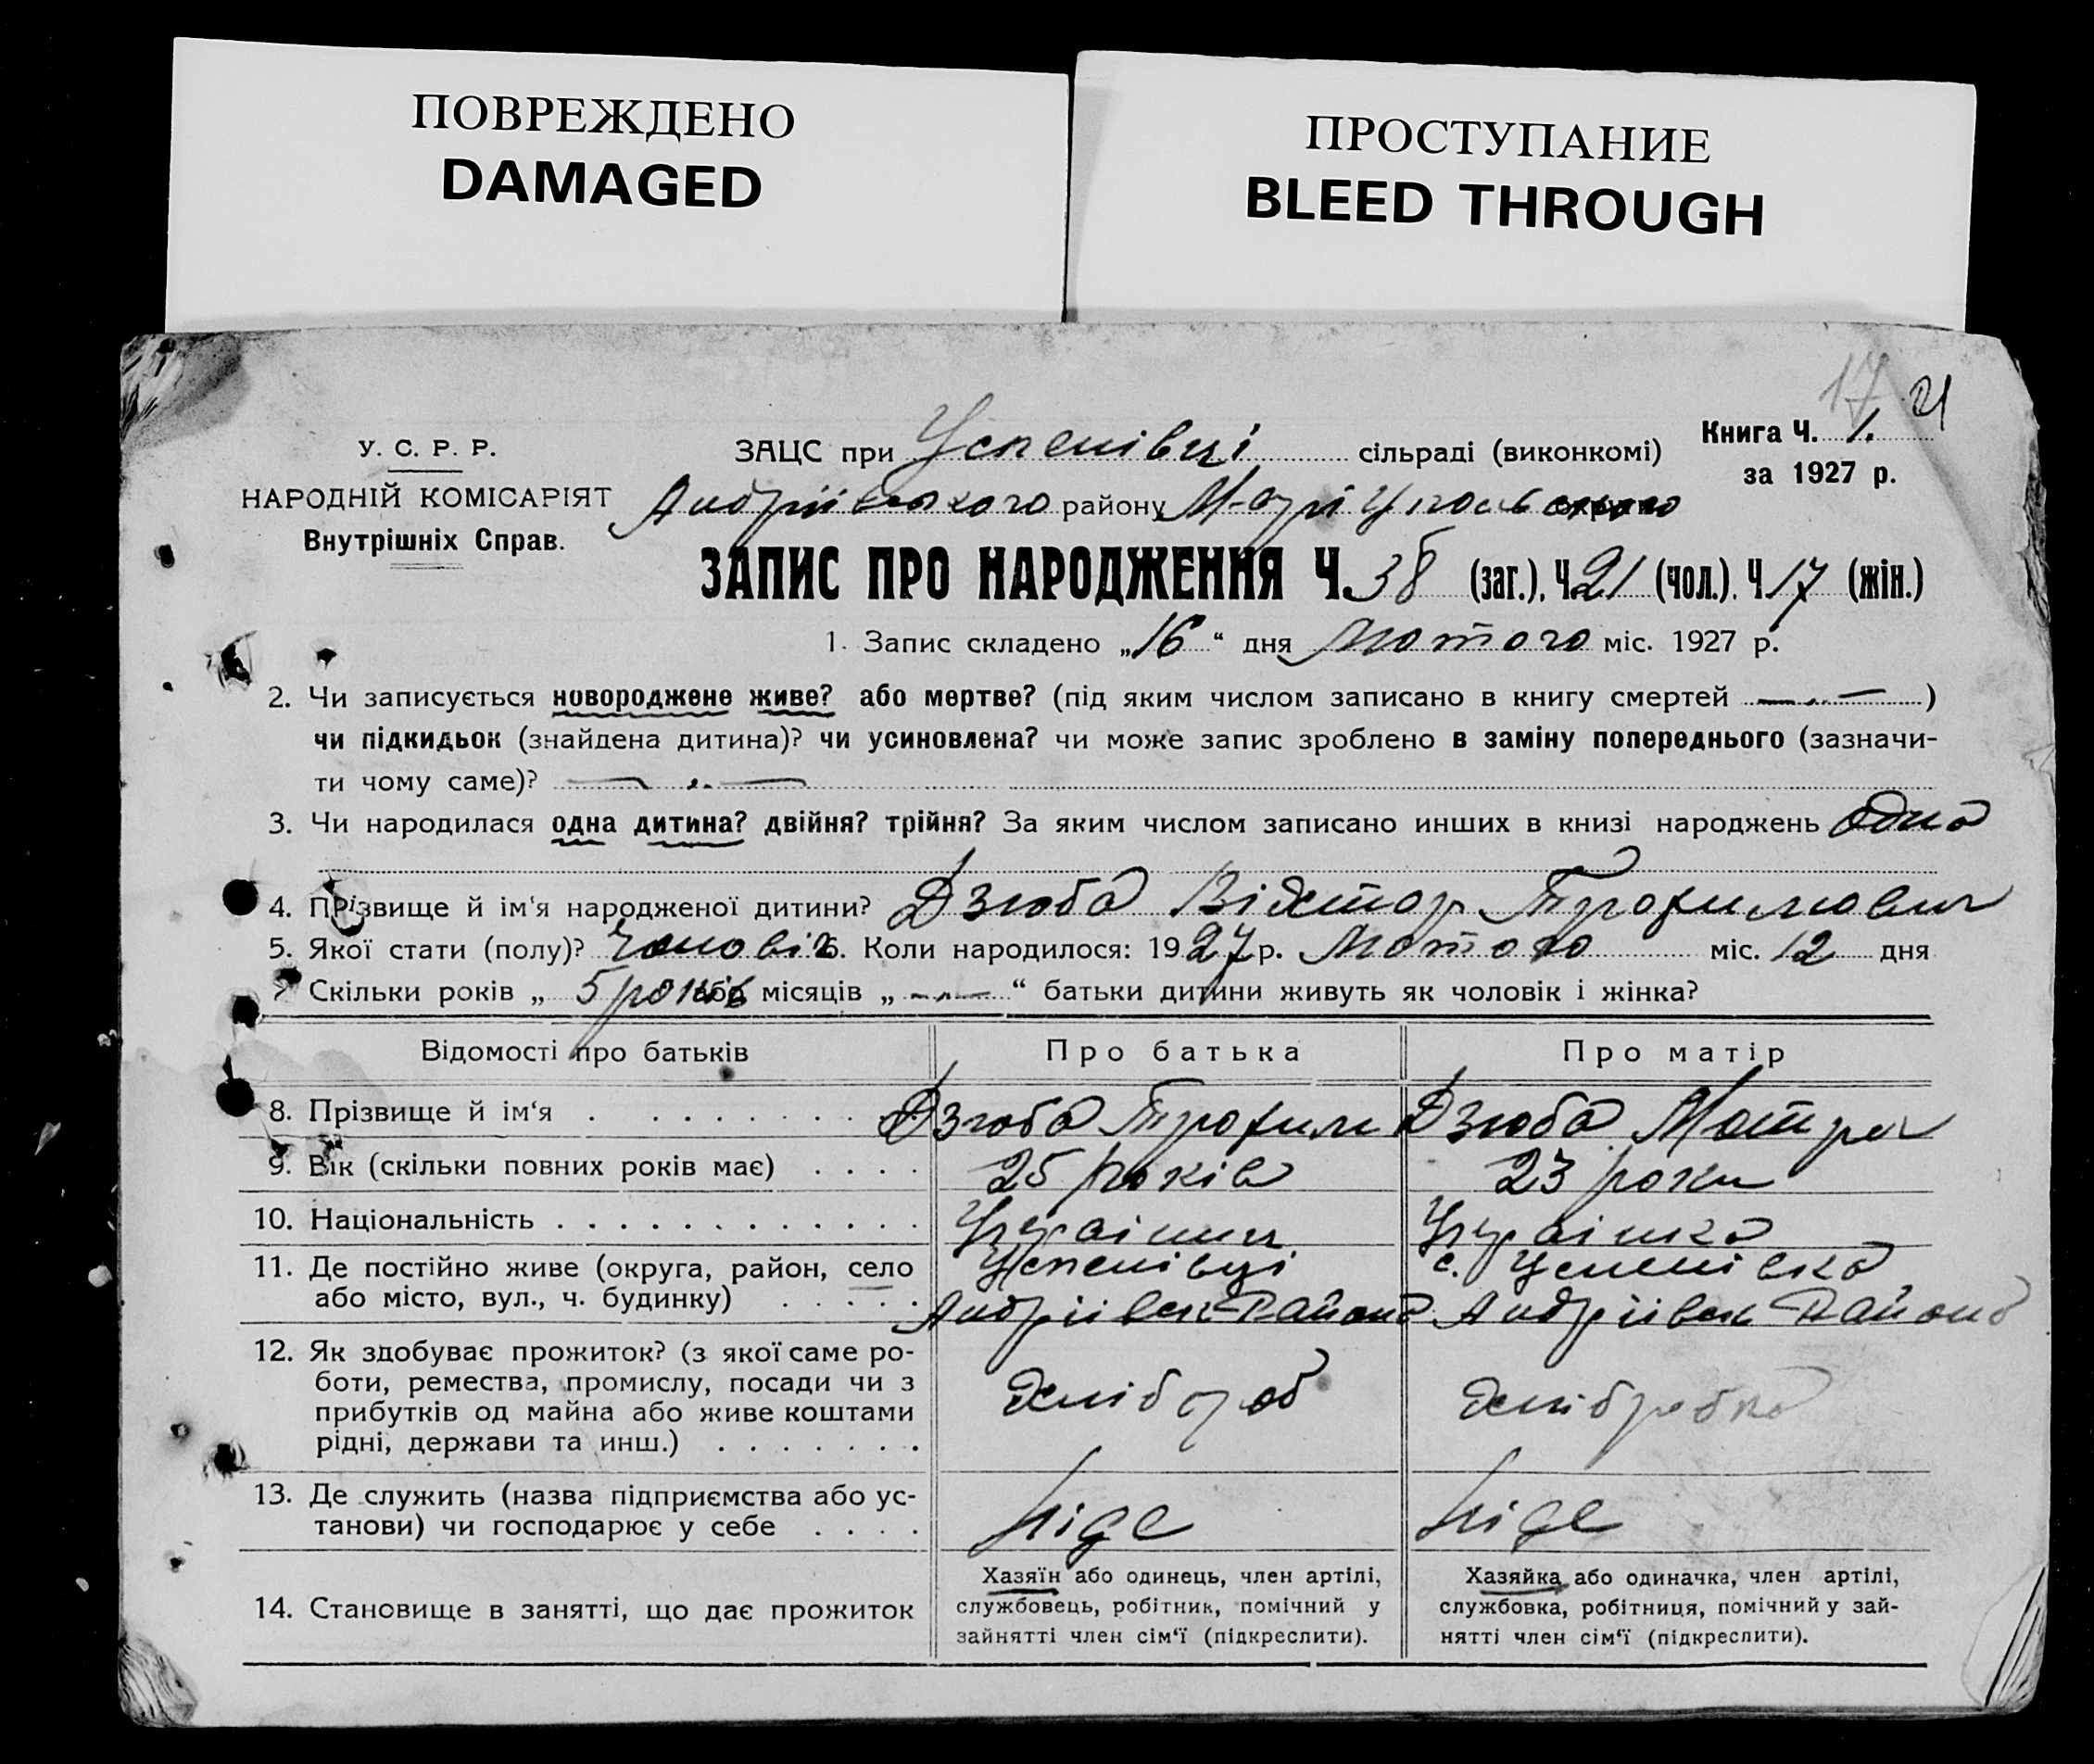 ПОВРЕЖДЕНО
DAMAGED
ПРОСТУПАНИЕ
BLEED THROUGH
17 21
У. С. Р. Р.
НАРОДНІЙ КОМІСАРІЯТ
Внутрішніх Справ.
ЗАЦС при Успенівці сільраді (виконкомі)
Андріївського району Маріупольського
Книга Ч. 1.
за 1927 р.
ЗАПИС ПРО НАРОДЖЕННЯ Ч. 38 (заг.), Ч 21 (чол.). Ч 17 (жін.)
1. Запис складено „16“ дня Лютого міс. 1927 р.
2. Чи записується новороджене живе? або мертве? (під яким числом записано в книгу смертей — „ — )
чи підкидьок (знайдена дитина)? чи усиновлена? чи може запис зроблено в заміну попереднього (зазначи-
ти чому саме)? — „ —
3. Чи народилася одна дитина? двійня? трійня? За яким числом записано инших в книзі народжень одна
4. Прізвище й ім'я народженої дитини? Дзюба Віктор Трофимович
5. Якої стати (полу)? Чоловіч 6. Коли народилося: 1927 р. Лютого міс. 12 дня
7. Скільки років „ 5 років або місяців „ — „ — “ батьки дитини живуть як чоловік і жінка?
Відомості про батьків
Про батька
Про матір
8. Прізвище й ім'я . . . . . . . . Дзюба Трофим Дзюба Мотря
9. Вік (скільки повних років має) . . . . 25 років 23 роки
10. Національність . . . . . . . . . . . . . Українец Українка
11. Де постійно живе (округа, район, село Успенівці с. Успенівка
або місто, вул., ч. будинку) . . . . . Андріївськ Району Андріївськ Району
12. Як здобуває прожиток? (з якої саме ро-
боти, ремества, промислу, посади чи з
прибутків од майна або живе коштами
рідні, держави та инш.) . . . . . . .
хлібороб
хлібробка
13. Де служить (назва підприємства або ус-
танови) чи господарює у себе . . . .
Ніде
Ніде
14. Становище в занятті, що дає прожиток
Хазяїн або одинець, член артілі,
службовець, робітник, помічний у
зайнятті член сім'ї (підкреслити).
Хазяйка або одиначка, член артілі,
службовка, робітниця, помічний у зай-
нятті член сім'ї (підкреслити).